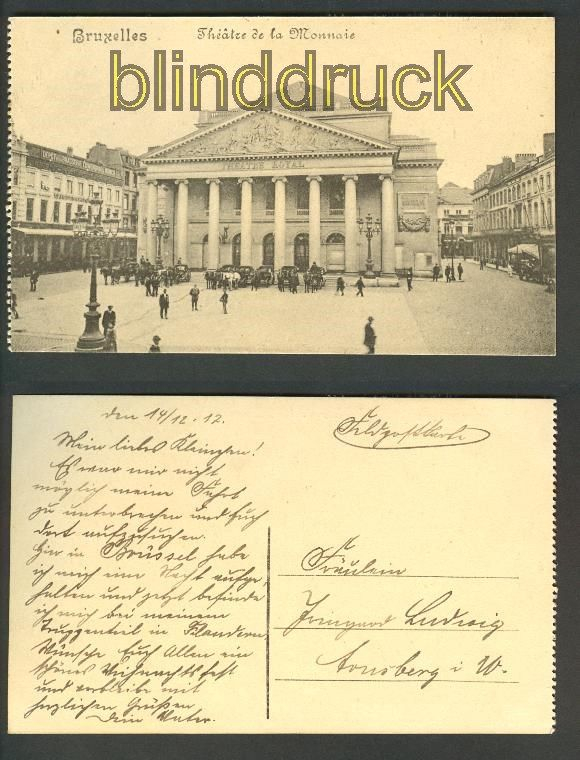 Bruxelles Théâtre de la Monnaie
blinddruck
THÉÂTRE ROYAL
den 14/12.17.
Feldpostkarte
Mein liebes
Es war mir nicht
möglich meine Fahrt
zu unterbrechen und Euch
dort aufzusuchen.
Hier in Brüssel habe
ich mich eine Nacht aufge-
halten und jetzt befinde
ich mich bei meinem
Truppenteil in Flandern.
Wünsche Euch Allen ein
schönes Weihnachtsfest
und verbleibe mit
herzlichen Grüßen
Dein Vater.
Fräulein
Irmgard Ludwig
Arnsberg i W.